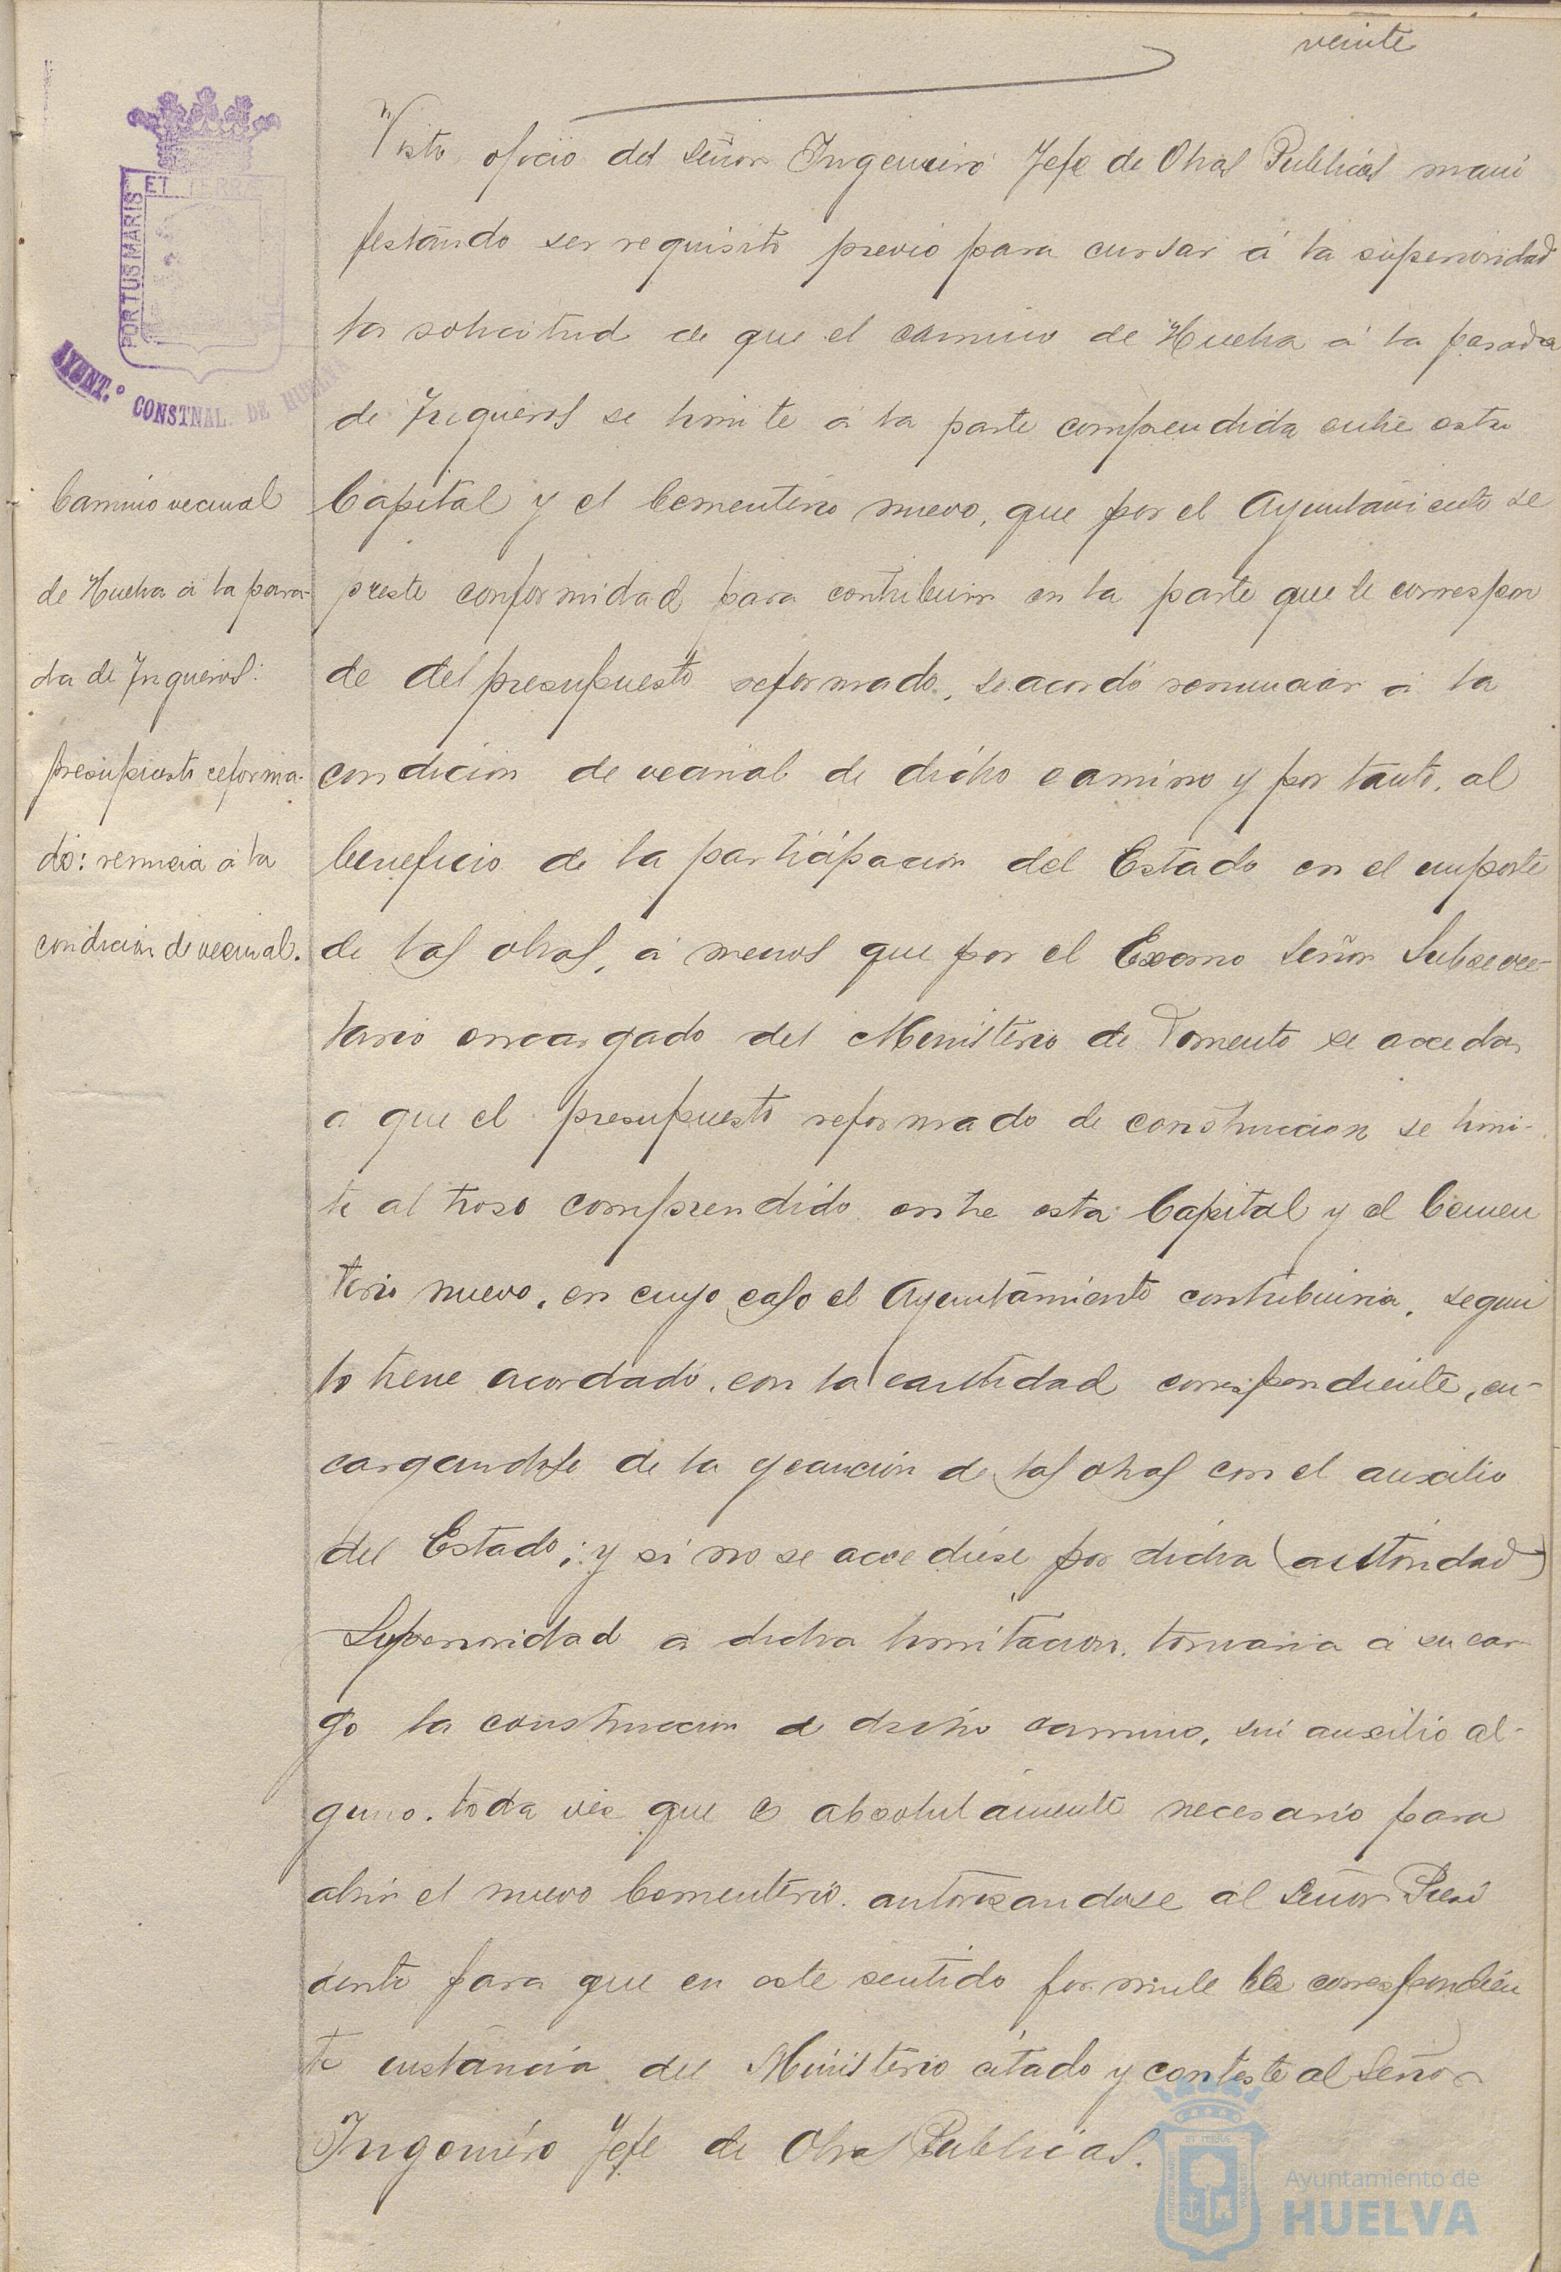 veinte
ET TERRE
PORTUS MARIS
AYUNT.º CONSTNAL. DE HUELVA
Camino vecinal
de Huelva á la para-
da de Trigueros:
presupuesto reforma-
do: renuncia á la
condición de vecinal.
Visto oficio del Señor Ingeniero Jefe de Obras Publicas mani
festando ser requisito previo para cursar á la superioridad
la solicitud de que el camino de Huelva á la parada
de Trigueros se limite á la parte comprendida entre esta
Capital y el Cementerio nuevo, que por el Ayuntamiento se
preste conformidad para contribuir en la parte que le correspon
de del presupuesto reformado, se acordó renunciar á la
condición de vecinal de dicho camino y por tanto, al
beneficio de la participación del Estado en el importe
de las obras, á menos que por el Excmo Señor Subsecre-
tario encargado del Ministerio de Fomento se acceda
a que el presupuesto reformado de construccion se limi-
te al troso comprendido entre esta Capital y el Cemen
terio nuevo, en cuyo caso el Ayuntamiento contribuiria, segun
lo tiene acordado, con la cantidad correspondiente, en-
cargandose de la ejecución de las obras con el auxilio
del Estado; y si no se accediese por dicha (autoridad)
Superioridad a dicha limitacion, tomaria á su car-
go la construccion de dicho camino, sin auxilio al-
guno, toda vez que es absolutamente necesario para
abrir el nuevo Cementerio, autorizandose al Señor Presi
dente para que en este sentido formule la correspondien
te instancia del Ministerio citado y conteste al Señor
Ingeniero Jefe de Obras Publicas.
Ayuntamiento de
HUELVA